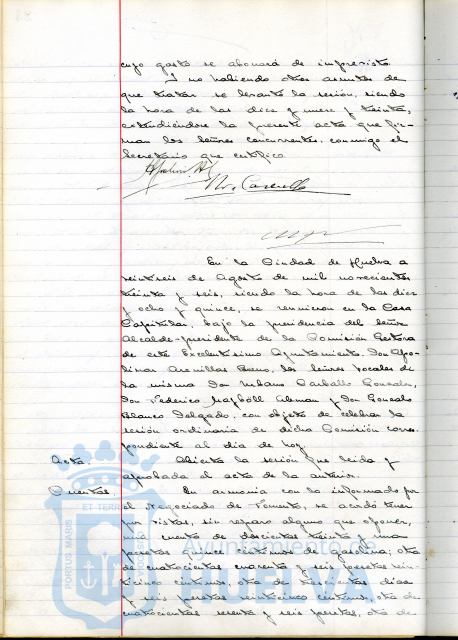 cuyo gasto se abonará de imprevistos
Y no habiendo otros asuntos de
que tratar se levantó la sesión, siendo
la hora de las diez y nueve y treinta,
extendiéndose la presente acta que fir-
man los señores concurrentes, conmigo el
Secretario que certifico
En la Ciudad de Huelva a
veintiseis de Agosto de mil novecientos
treinta y seis, siendo la hora de las diez
y ocho y quince, se reunieron en la Casa
Capitular, bajo la presidencia del señor
Alcalde-presidente de la Comisión Gestora
de este Excelentísimo Ayuntamiento, Don Apo-
linar Arenillas Bueno, los señores Vocales de
la misma Don Urbano Carballo González,
Don Federico Alemán y Don Gonzalo
Blanco Delgado, con objeto de celebrar la
sesión ordinaria de dicha Comisión corres-
pondiente al día de hoy.
Acta. Abierta la sesión fue leida y
aprobada el acta de la anterior.
Cuentas. En armonía con lo informado por
el Negociado de Fomento, se acordó tener
por vistas, sin reparo alguno que oponer,
una cuenta de doscientas treinta y una
pesetas y once céntimos de gasolina; otra
de cuatrocientas cuarenta y seis pesetas vein-
ticinco céntimos, otra de trescientas diez
y seis pesetas veinticinco céntimos, otra de
cuatrocientas sesenta y seis pesetas, otra de
PORTUS MARIS
ET TERRÆ
Ayuntamiento de
HUELVA